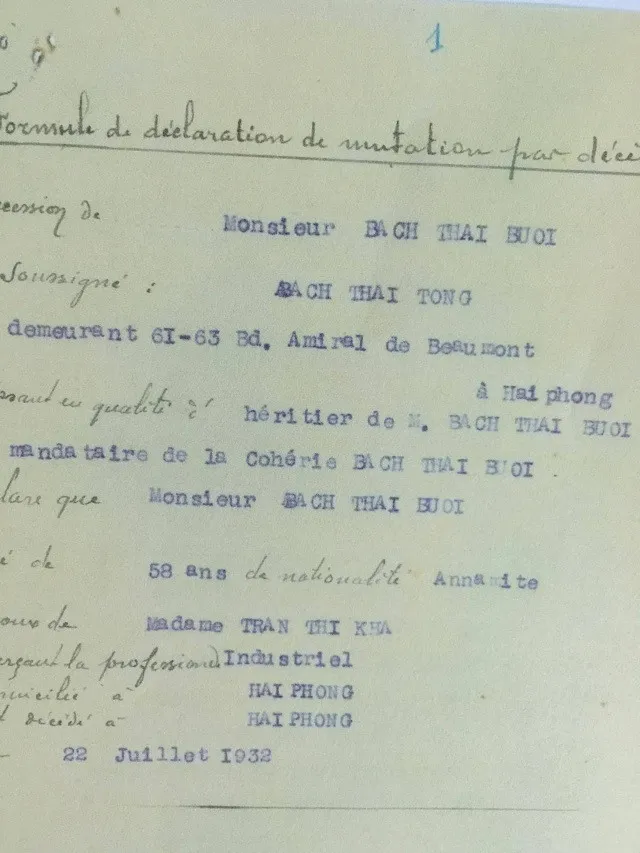 1
Formule de déclaration de mutation par décè
cession de Monsieur BACH THAI BUOI
Soussigné : BACH THAI TONG
demeurant 6I-63 Bd. Amiral de Beaumont
à Haiphong
issant en qualité d' héritier de M. BACH THAI BUOI
mandataire de la Cohérie BACH THAI BUOI .
clare que Monsieur BACH THAI BUOI
é de 58 ans de nationalité Annamite
oux de Madame TRAN THI KHA
erçant la profession d Industriel
omicilié à HAIPHONG
t décédé à HAIPHONG
22 Juillet I932